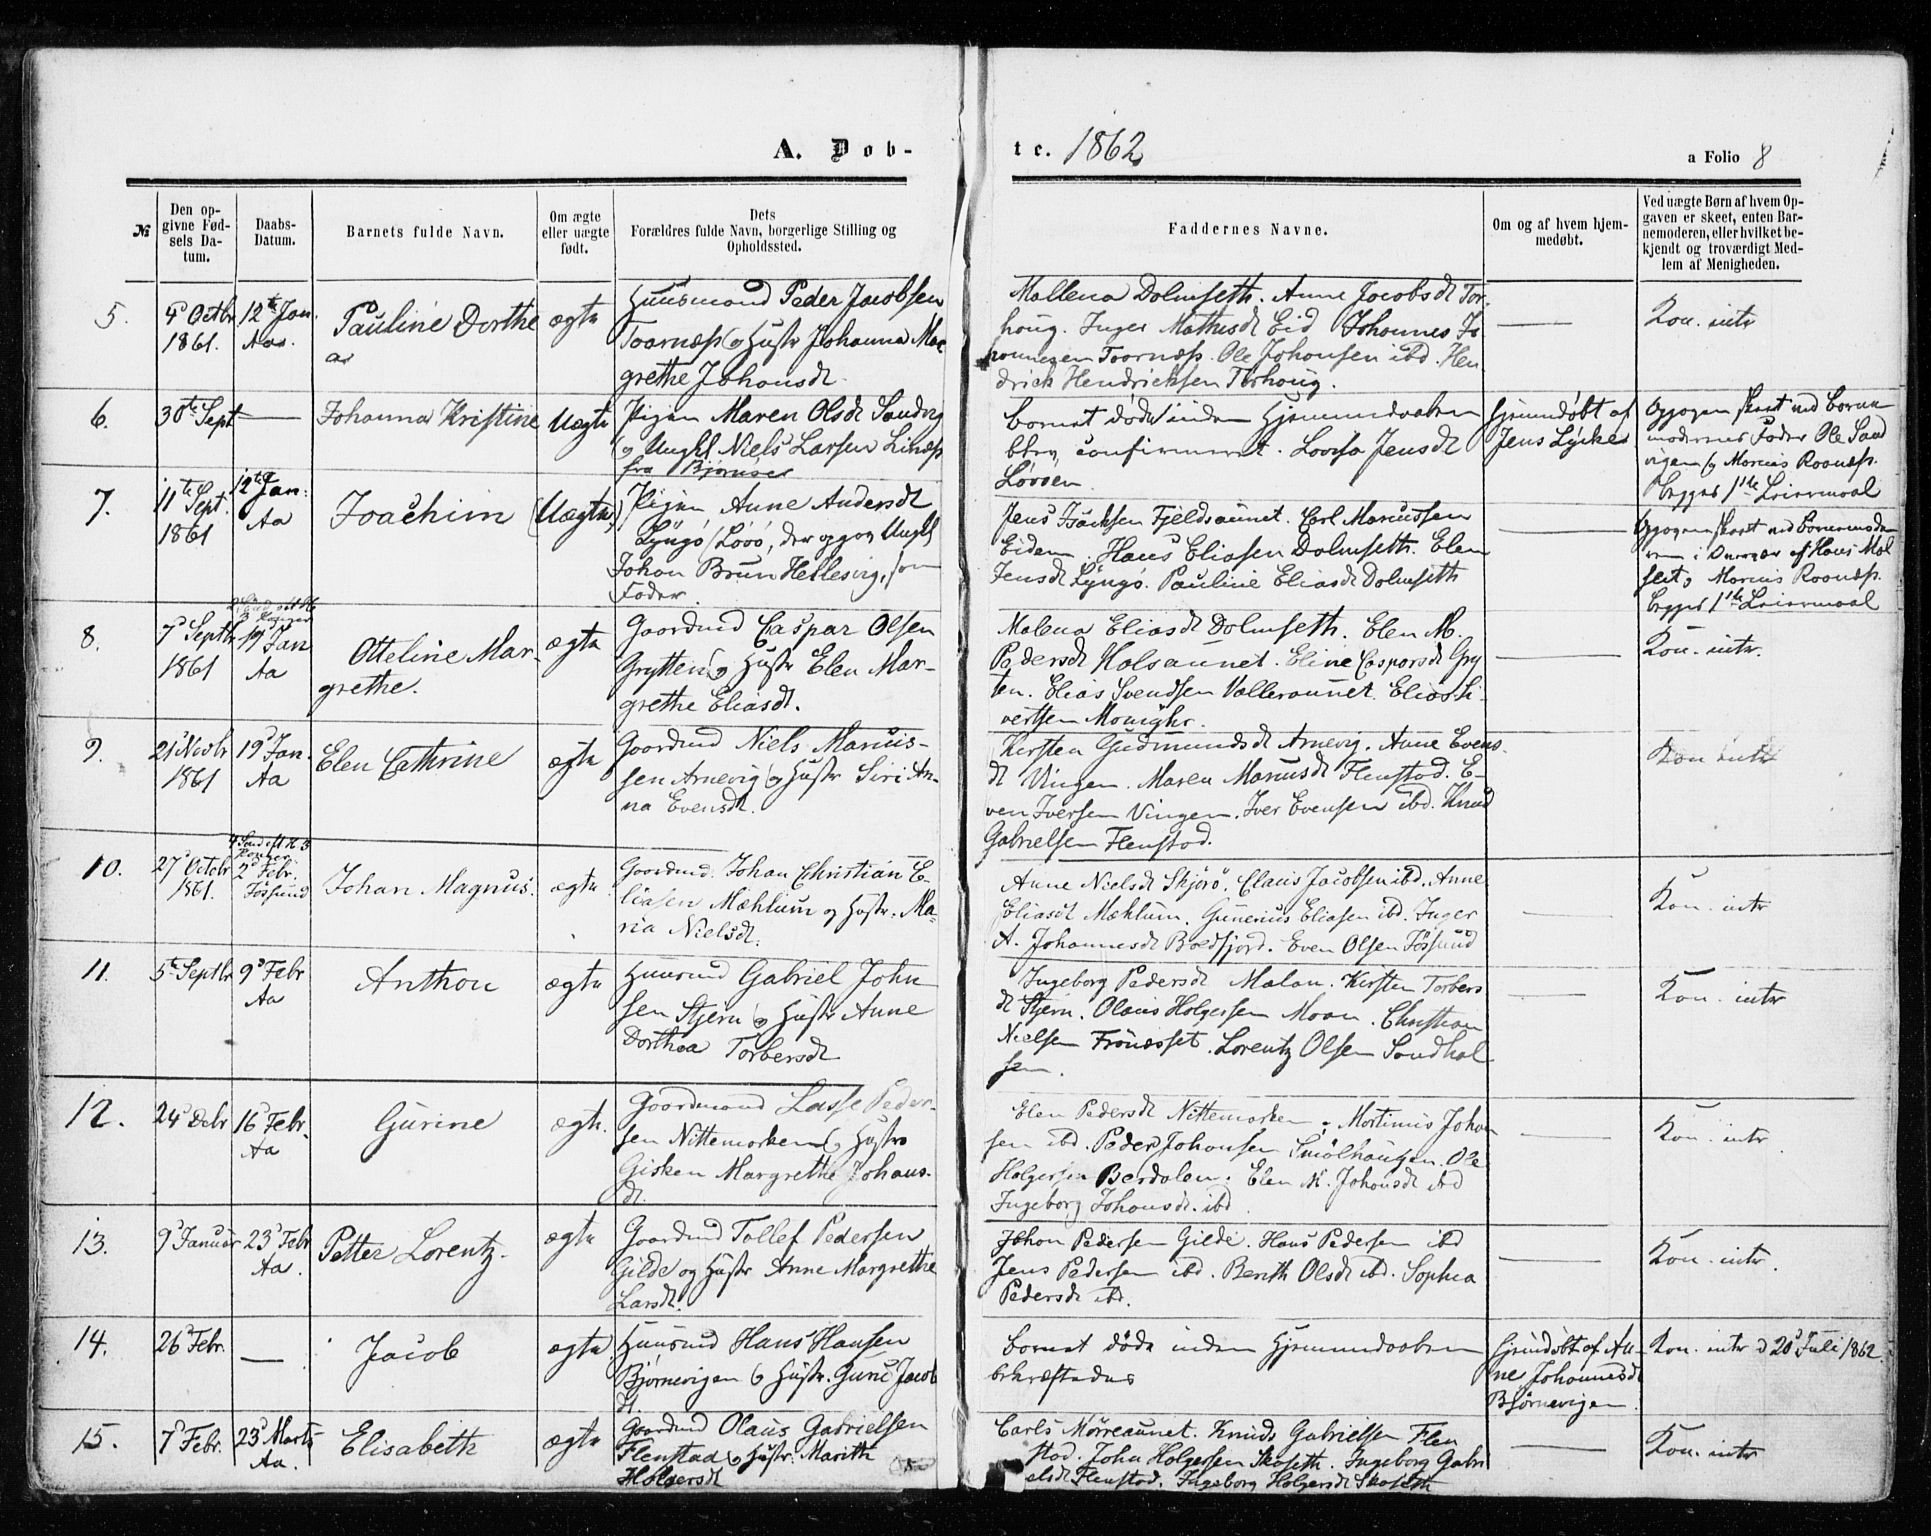 A. Døb-
te. 1862
a Folio 8
№
Den op-
givne Fød-
sels Da-
tum.
Daabs-
Datum.
Barnets fulde Navn.
Om ægte
eller uægte
født.
Dets
Forældres fulde Navn, borgerlige Stilling og
Opholdssted.
Faddernes Navne.
Om og af hvem hjem-
medøbt.
Ved uægte Børn af hvem Op-
gaven er skeet, enten Bar-
nemoderen, eller hvilket be-
kjendt og troværdigt Med-
lem af Menigheden.
5.
Octbr
1861.
12te Jan.
Aa
Pauline Dorthe
a
ægte
Huusmand Peder Jacobsen
Taarnæs og Hustr Johanna Mar
grethe Johansdt
Mallena Dolmseth. Anne Jacobsdt Tor-
houg. Inger Mathisdt Eid Johannes Jo
hannesen Taarnæs. Ole Johansen ibd. Hen
drick Hendricksen Torhoug.
Kon. intr
6.
30te Sept
Johanna Kristine
Uægte
Pigen Maren Olsdt Sandvig
og Ungkl Niels Larsen Linæs
fra Bjørnør
Barnet døde inden Hjemmedaaben
blev confirmeret. Lovisa Jensdt
Løvøen
Hjemmdøbt af
Jens Lycke
Opgaven skeet ved Barne
moderens Fader Ole Sand
vigen og Marius Roanæs.
Begges 1ste Leiermaal
7.
11te Sept.
1861
12te Jan:
Aa
Joachim
Uægte
Pigen Anne Andersdt
Lyngø/Løvø, der opgav Ungkl
Johan Brun Hellesvig, som
Fader
Jens Isachsen Fjeldsaunet. Carl Marcussen
Eidem. Hans Eliasen Dolmseth. Elen
Jensdt Lyngø. Pauline Eliasdt Dolmseth
Opgaven skeet ved Barnemoder
en i Overvær af Hans Mæl
seth og Marius Roanæs.
Begges 1ste Leiermaal
8.
7d Septbr
1861
Jan
Aa
Otteline Mar-
grethe.
ægte
Gaardmd Caspar Olsen
Grytten og Hustr Elen Mar-
grethe Eliasdt.
Malena Eliasdt Dolmseth. Elen M.
Pedersdt Holsaunet. Eline Caspersdt Gry
ten. Elias Svendsen Valleraunet. Elias Si-
vertsen
Kon. intr.
9.
21d Novbr
1861
19d Jan.
Aa
Elen Cathrine
ægte
Gaardmd Niels Marius-
sen Arnevig og Hustr Siri An-
na Evensdt.
Kirsten Gudmundsdt Arnevig. Anne Evens-
dt Vingen. Maren Mariusdt Flenstad. E-
ven Iversen Vingen. Iver Evensen ibd. Knud
Gabrielsen Flenstad.
Kon intr
10.
27d Octbr
1861.
4 Sønd eft H 3
Konger
2d Febr.
Jøssund
Johan Magnus.
ægte
Gaardmd. Johan Christian E-
liasen Mæhlum og Hustr. Ma-
ria Nielsdt.
Anne Nielsdt Skjørø. Claus Jacobsen ibd. Anne
Eliasdt Mæhlum. Gunerius Eliasen ibd. Inger
A. Johannesdt Boedfjord. Even Olsen Jøssund
Kon. intr
11.
5te Septbr
9d Febr
Aa
Anthon
ægte
Huusmd Gabriel John
sen Stjern og Hustr Anne
Dorthea Torbersdt
Ingeborg Pedersdt Malan. Kirsten Torbers
dt Stjern. Olaus Holgersen Moan. Christian
Nielsen Frønesset. Lorentz Olsen Sandhol
sen.
Kon. intr
12.
24d Debr
16d Febr.
Aa
Gurine
ægte.
Gaardmand Lasse Peder-
sen Nittemarken og Hustr
Gisken Margrethe Johans-
dt.
Elen Pedersdt Nittemarken. Mortinus Johan
sen ibd. Peder Johansen Smølhaugen. Ole
Holgersen Berdalen. Elen M. Johansdt ibd
Ingeborg Johansdt. ibd.
Kon. intr
13.
9d Januar
23d Febr
Aa.
Petter Lorentz.
ægte
Gaardmd Tollef Pedersen
Gilde og Hustr Anne Margrethe
Larsdt.
Johan Pedersen Gilde. Hans Pedersen ibd
Jens Pedersen ibd. Berith Olsdt ibd. Sophia
Pedersdt ibd.
Kon. intr.
14.
26d Febr.
Jacob
ægte
Huusmd Hans Hansen
Bjørnevigen og Hustr. Gune Jacob
dt.
Barnet døde inden Hjemmedaaben
bekræftedes
Hjemdøbt af An-
ne Johannesdt
Bjørnevigen.
Kon. intr d 20d Juli 1862.
15.
7d Febr.
23d Marts
Aa.
Elisabeth
ægte
Gaardmd Olaus Gabrielsen
Flenstad og Hustr. Marith
Holgersdt
Carls Mørreaunet. Knud Gabrielsen Flen
stad. John Holgersen Skoseth. Ingeborg Gabri
elsdt Flenstad. Ingeborg Holgersdt Skoseth
Kon. intr